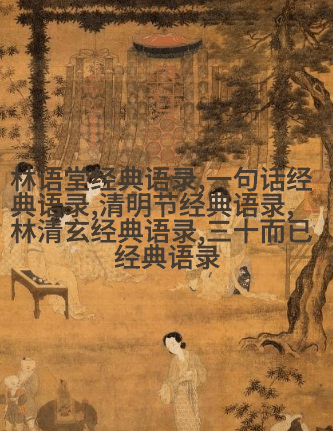 林语堂经典语录,一句话经
典语录,清明节经典语录,
林清玄经典语录,三十而已
经典语录